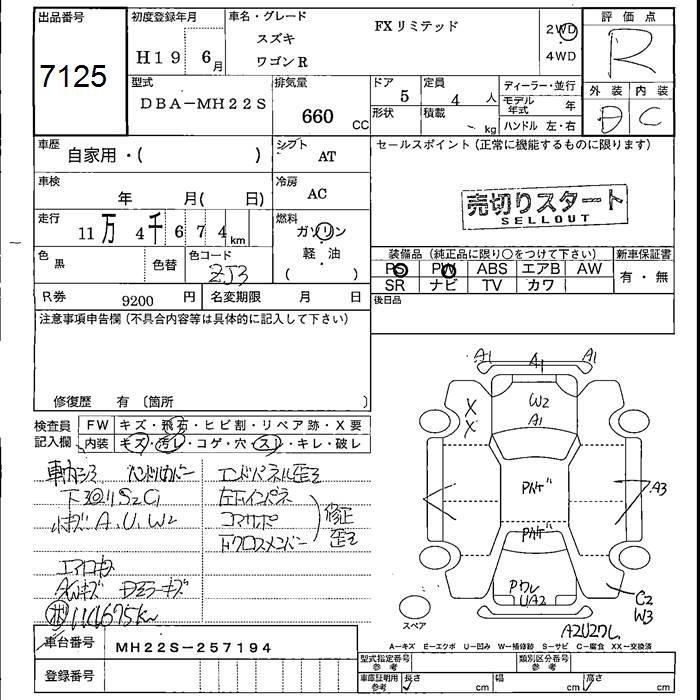 出品番号
7125
初度登録年月
H19 6月
車名・グレード
スズキ
ワゴンR
FXリミテッド
2WD
4WD
評価点
R
外装 内装
D C
型式
DBA-MH22S
排気量
660 cc
ドア
5
定員
4 人
形状
積載
kg
ディーラー・並行
モデル年式 年
ハンドル 左・右
車歴
自家用・( )
シフト
AT
セールスポイント(正常に機能するものに限ります)
売切りスタート
SELLOUT
車検
年 月( 日)
冷房
AC
走行
11万 4千 6 7 4 km
燃料
ガソリン
軽・油
( )
色
黒
色替
色コード
ZJ3
装備品(純正品に限り○をつけて下さい)
新車保証書
PS PW ABS エアB AW
SR ナビ TV カワ
有・無
R券
9200 円
名変期限 月 日
後日品
注意事項申告欄(不具合内容等は具体的に記入して下さい)
修復歴 有(箇所 )
検査員
記入欄
FW キズ・飛石・ヒビ割・リペア跡・X要
内装 キズ・汚レ・コゲ・穴・スレ・キレ・破レ
ハンドルカバー
下廻りS2C1
小キズ A.U.W2
エンドパネル歪
左インパネ
コアサポ
下クロスメンバー
修正
歪
AWキズ ドアミラーキズ
114675km
A1 A1 A1
W2
A1
X
X
A3
C2
W3
UA2
スペア
A-キズ E-エクボ U-凹み W-補修跡 S-サビ C-腐食 XX-交換済
車台番号
MH22S-257194
登録番号
型式指定番号
参考
類別区分番号
参考
車庫証明用
参考
長さ cm
幅 cm
高さ cm